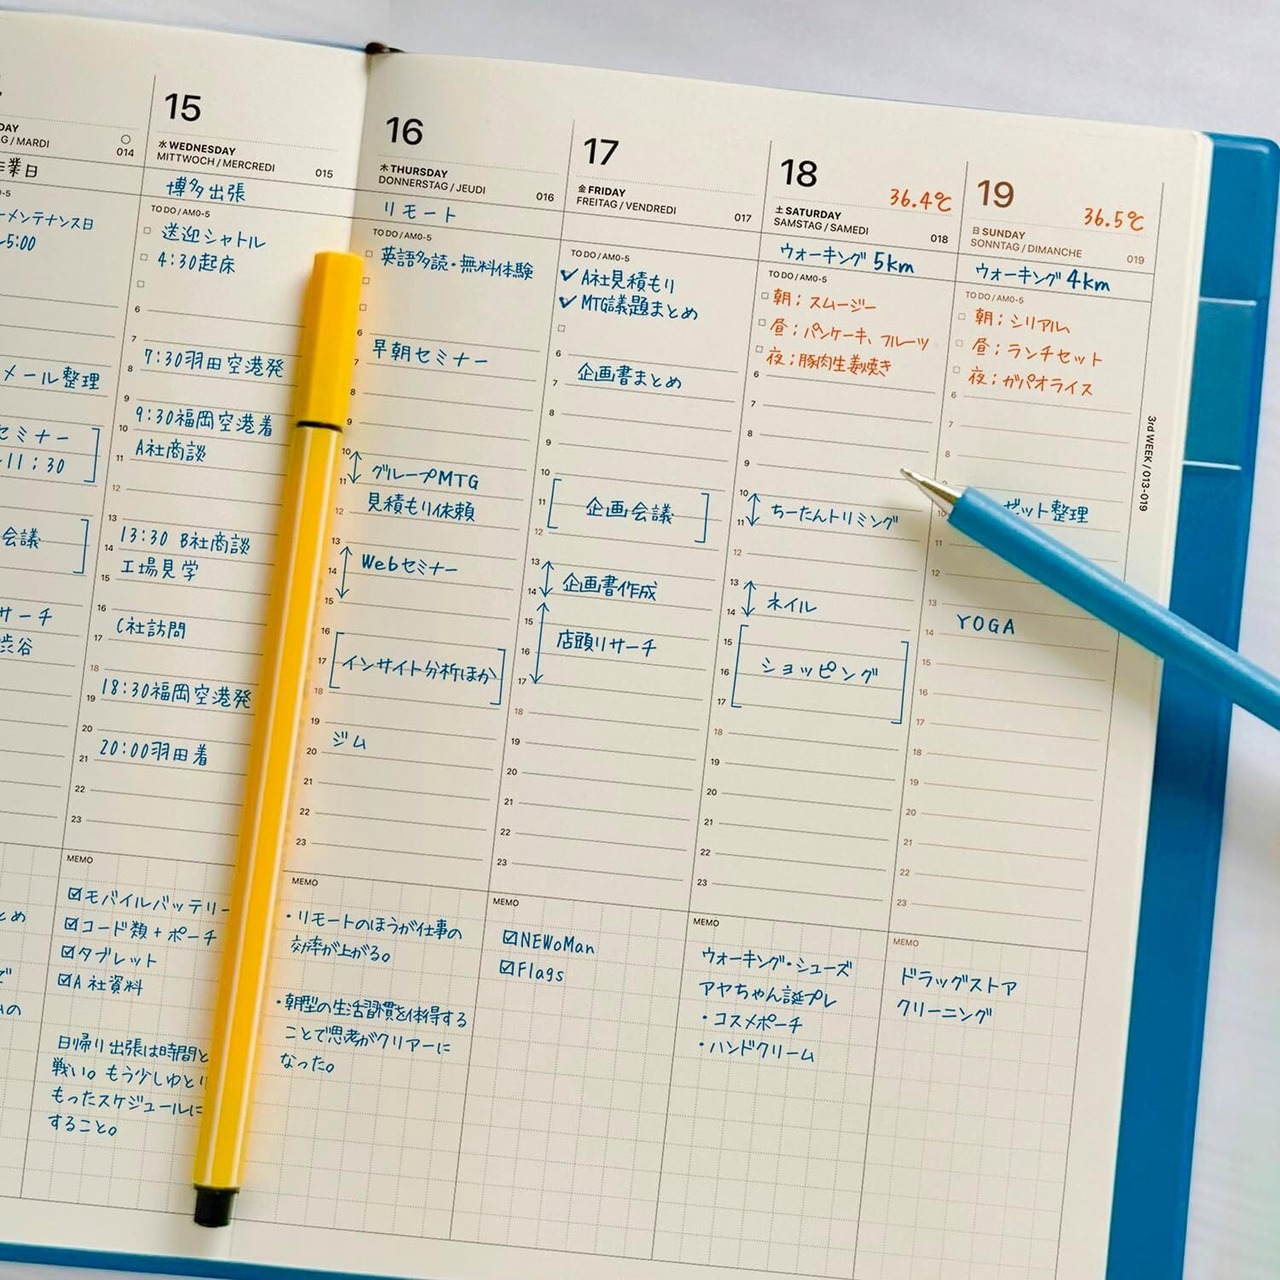 DAY
G / MARDI
014
業日
0-5
メンテナンス日
5:00
メール整理
セミナー
11:30
会議
サーチ
渋谷
15
水 WEDNESDAY
MITTWOCH / MERCREDI
015
博多出張
TO DO / AM0-5
送迎シャトル
4:30起床
6
7
7:30羽田空港発
8
9
9:30福岡空港着
10
A社商談
11
12
13
13:30 B社商談
14
工場見学
15
16
C社訪問
17
18
18:30福岡空港発
19
20
20:00羽田着
21
22
23
MEMO
☑モバイルバッテリー
☑コード類+ポーチ
☑タブレット
☑A社資料
日帰り出張は時間と
戦い。もう少しゆとり
もったスケジュールに
すること。
16
木 THURSDAY
DONNERSTAG / JEUDI
016
リモート
TO DO / AM0-5
英語多読・無料体験
6
早朝セミナー
7
8
9
10
グループMTG
11
見積もり依頼
12
13
Webセミナー
14
15
16
インサイト分析ほか
17
18
19
ジム
20
21
22
23
MEMO
・リモートのほうが仕事の
効率が上がる。
・朝型の生活習慣を体得する
ことで思考がクリアーに
なった。
17
金 FRIDAY
FREITAG / VENDREDI
017
TO DO / AM0-5
✓A社見積もり
✓MTG議題まとめ
6
企画書まとめ
7
8
9
10
11
企画会議
12
13
企画書作成
14
15
店頭リサーチ
16
17
18
19
20
21
22
23
MEMO
☑NEWoMan
☑Flags
18
36.4℃
土 SATURDAY
SAMSTAG / SAMEDI
018
ウォーキング 5km
TO DO / AM0-5
朝；スムージー
昼；パンケーキ、フルーツ
夜；豚肉生姜焼き
6
7
8
9
10
ちーたんトリミング
11
12
13
ネイル
14
15
ショッピング
16
17
18
19
20
21
22
23
MEMO
ウォーキング・シューズ
アヤちゃん誕プレ
・コスメポーチ
・ハンドクリーム
19
36.5℃
日 SUNDAY
SONNTAG / DIMANCHE
019
ウォーキング 4km
TO DO / AM0-5
朝；シリアル
昼；ランチセット
夜；ガパオライス
6
7
8
10
ゼット整理
11
12
13
YOGA
14
15
16
17
18
19
20
21
22
23
MEMO
ドラッグストア
クリーニング
3rd WEEK / 013-019